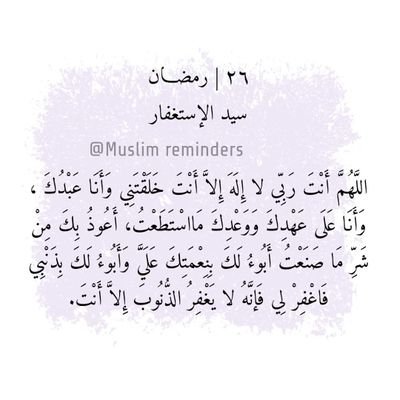 ٢٦ | رمضـان
سيد الإستغفار
@Muslim reminders
اللَّهُمَّ أَنْتَ رَبِّي لا إِلَهَ إِلاَّ أَنْتَ خَلَقْتَنِي وَأَنَا عَبْدُكَ ،
وَأَنَا عَلَى عَهْدِكَ وَوَعْدِكَ مَااسْتَطَعْتُ، أَعُوذُ بِكَ مِنْ
شَرِّ مَا صَنَعْتُ أَبُوءُ لَكَ بِنِعْمَتِكَ عَلَيَّ وَأَبُوءُ لَكَ بِذَنْبِي
فَاغْفِرْ لِي فَإِنَّهُ لا يَغْفِرُ الذُّنُوبَ إِلاَّ أَنْتَ.